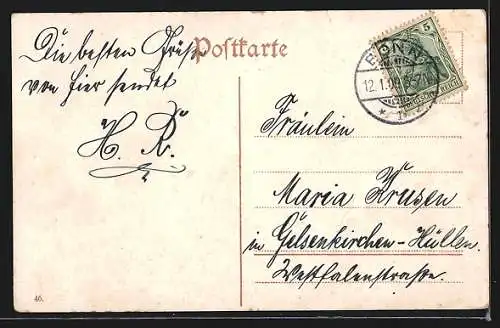 Postkarte
Die besten Grüße
von hier sendet
H. R.
5
BONN
12.1.09. 6-7N.
Fräulein
Maria Krusen
in Gelsenkirchen-Hüllen.
Westfalenstraße.
40.